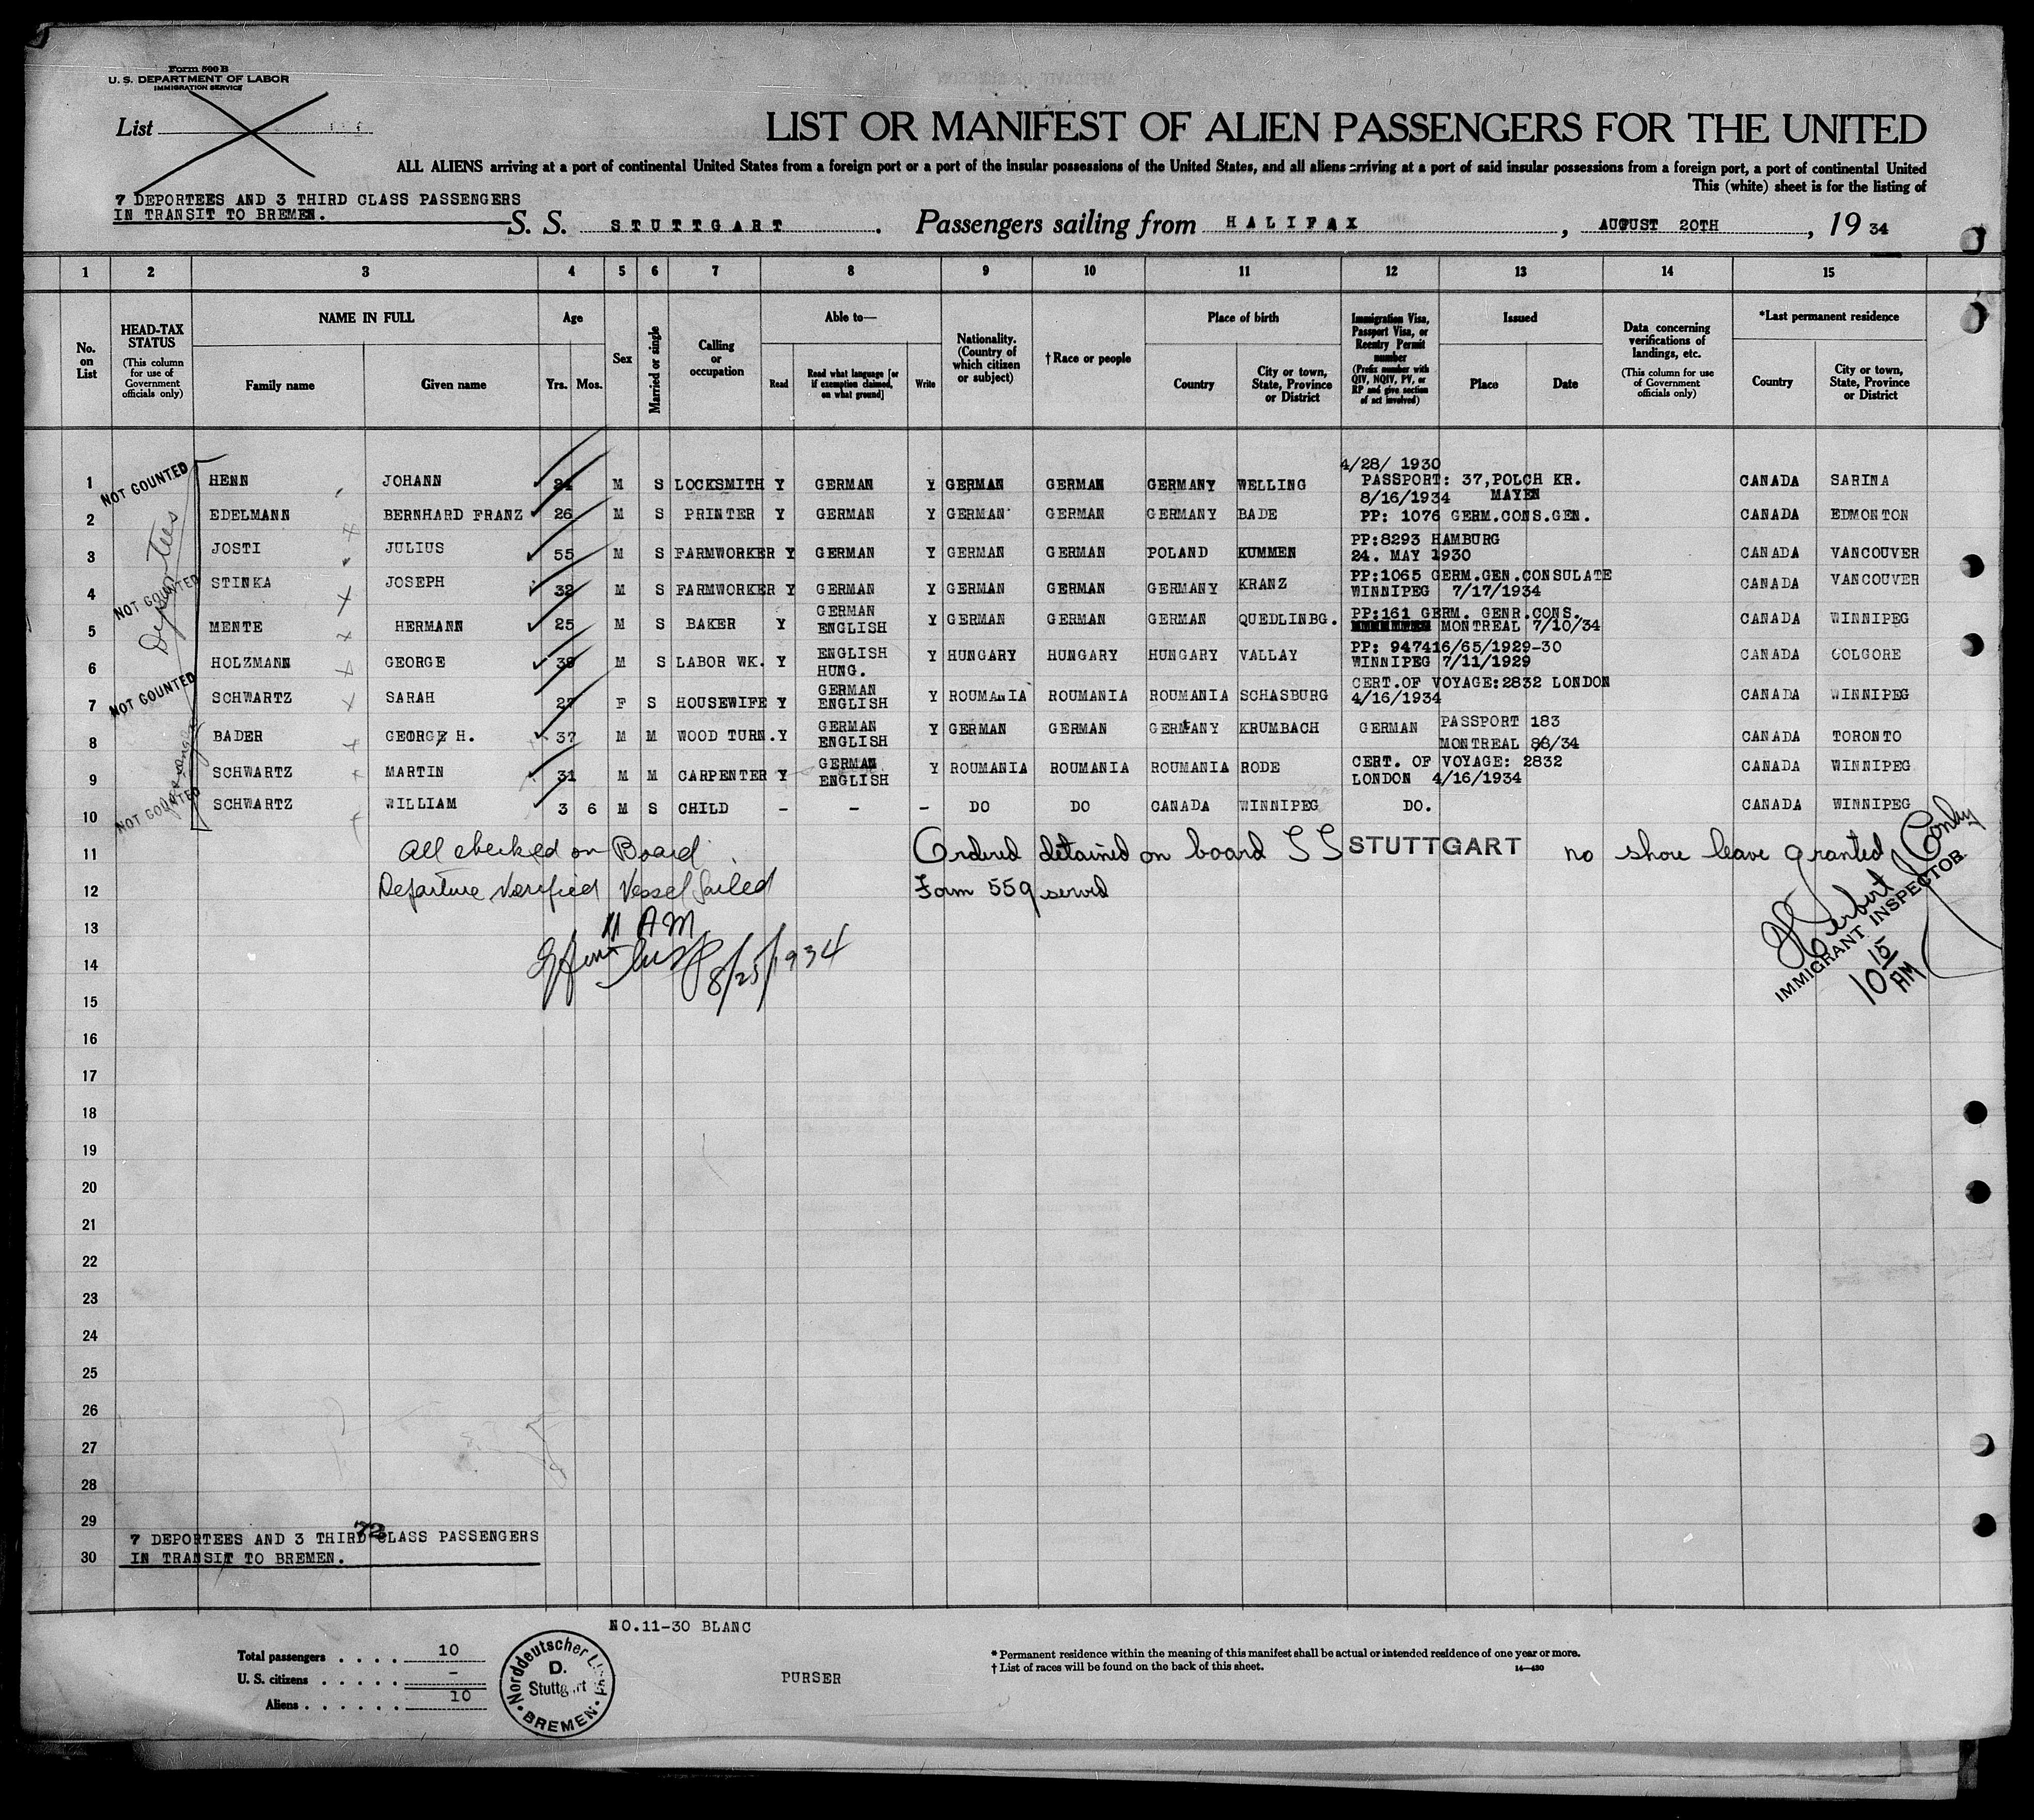 Form 500 B
U. S. DEPARTMENT OF LABOR
IMMIGRATION SERVICE
List
LIST OR MANIFEST OF ALIEN PASSENGERS FOR THE UNITED
ALL ALIENS arriving at a port of continental United States from a foreign port or a port of the insular possessions of the United States, and all aliens arriving at a port of said insular possessions from a foreign port, a port of continental United
This (white) sheet is for the listing of
7 DEPORTEES AND 3 THIRD CLASS PASSENGERS
IN TRANSIT TO BREMEN.
S. S. STUTTGART. Passengers sailing from HALIFAX, AUGUST 20TH, 19 34
1 2 3 4 5 6 7 8 9 10 11 12 13 14 15
No. on List
HEAD-TAX STATUS
(This column for use of Government officials only)
NAME IN FULL
Family name
Given name
Age
Yrs. Mos.
Sex
Married or single
Calling or occupation
Able to—
Read
Read what language [or if exemption claimed, on what ground]
Write
Nationality. (Country of which citizen or subject)
†Race or people
Place of birth
Country
City or town, State, Province or District
Immigration Visa, Passport Visa, or Reentry Permit number
(Prefix number with QIV, NQIV, PV, or RP and give section of act involved)
Issued
Place
Date
Data concerning verifications of landings, etc.
(This column for use of Government officials only)
*Last permanent residence
Country
City or town, State, Province or District
NOT COUNTED
Deportees
NOT COUNTED
NOT COUNTED
NOT COUNTED
4/28/ 1930
1 HENN JOHANN M S LOCKSMITH Y GERMAN Y GERMAN GERMAN GERMANY WELLING PASSPORT: 37,POLCH KR. CANADA SARINA
8/16/1934 MAYEN
2 EDELMANN BERNHARD FRANZ 26 M S PRINTER Y GERMAN Y GERMAN GERMAN GERMANY BADE PP: 1076 GERM.CONS.GEN. CANADA EDMONTON
3 JOSTI JULIUS 55 M S FARMWORKER Y GERMAN Y GERMAN GERMAN POLAND KUMMEN PP:8293 HAMBURG CANADA VANCOUVER
24. MAY 1930
4 STINKA JOSEPH 32 M S FARMWORKER Y GERMAN Y GERMAN GERMAN GERMANY KRANZ PP:1065 GERM.GEN.CONSULATE CANADA VANCOUVER
WINNIPEG 7/17/1934
5 MENTE HERMANN 25 M S BAKER Y GERMAN ENGLISH Y GERMAN GERMAN GERMAN QUEDLINBG. PP:161 GERM. GENR.CONS. CANADA WINNIPEG
MONTREAL 7/10/34
6 HOLZMANN GEORGE M S LABOR WK. Y ENGLISH HUNG. Y HUNGARY HUNGARY HUNGARY VALLAY PP: 947416/65/1929-30 CANADA COLGORE
WINNIPEG 7/11/1929
7 SCHWARTZ SARAH 27 F S HOUSEWIFE Y GERMAN ENGLISH Y ROUMANIA ROUMANIA ROUMANIA SCHASBURG CERT.OF VOYAGE:2832 LONDON CANADA WINNIPEG
4/16/1934
8 BADER GEORGE H. 37 M M WOOD TURN. Y GERMAN ENGLISH Y GERMAN GERMAN GERMANY KRUMBACH GERMAN PASSPORT 183 CANADA TORONTO
MONTREAL 8/34
9 SCHWARTZ MARTIN 31 M M CARPENTER Y GERMAN ENGLISH Y ROUMANIA ROUMANIA ROUMANIA RODE CERT. OF VOYAGE: 2832 CANADA WINNIPEG
LONDON 4/16/1934
10 SCHWARTZ WILLIAM 3 6 M S CHILD - - - DO DO CANADA WINNIPEG DO. CANADA WINNIPEG
11 All checked on Board Ordered detained on board SS STUTTGART no shore leave granted
12 Departure Verified Vessel Sailed Form 559 served
13 11 AM
14 8/25/1934
Herbert Conby
IMMIGRANT INSPECTOR
10 15 AM
15
16
17
18
19
20
21
22
23
24
25
26
27
28
29
30
72
7 DEPORTEES AND 3 THIRD CLASS PASSENGERS
IN TRANSIT TO BREMEN.
NO.11-30 BLANC
Total passengers . . . . 10
U. S. citizens . . . . . -
Aliens . . . . . . 10
Norddeutscher Lloyd
D.
Stuttgart
BREMEN
PURSER
* Permanent residence within the meaning of this manifest shall be actual or intended residence of one year or more.
† List of races will be found on the back of this sheet. 14—430